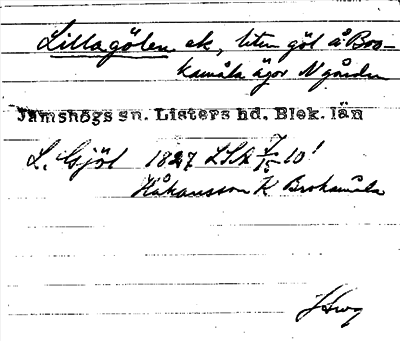 Lillagölen ek, liten göl å Bro-
kamåla ägor N gården
Jämshögs sn. Listers hd. Blek. län
L. Gjöl 1827 LSA 7/15 10¹
Håkansson K Brokamåla